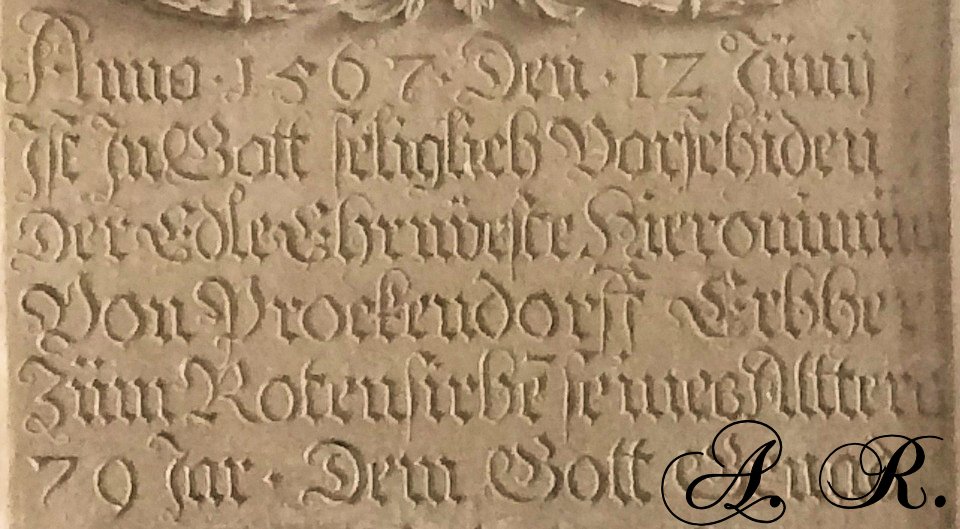 Anno · 1567 · Den · 12 Jünij
Ist In Gott seliglich Vorschiden
Der Edle Ehrnveste Hieronimu
Von Prockendorff Erbhe
Züm Rotensirbē seines Altters
79 Jar · Dem Gott Gnad
A. R.